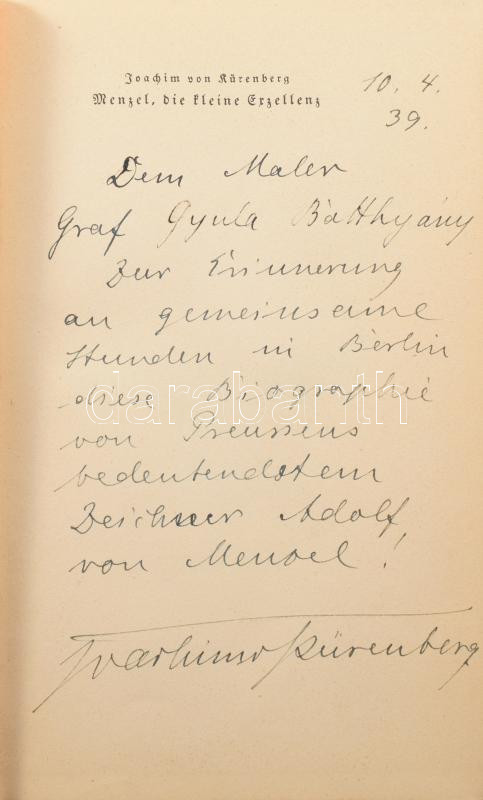 Joachim von Kürenberg
Menzel, die kleine Exzellenz
10. 4.
39.
Dem Maler
Graf Gyula Batthyány
Zur Erinnerung
an gemeinsame
Stunden in Berlin
diese Biographie
von Preussens
bedeutendstem
Zeichner Adolf
von Menzel!
Joachim v Kürenberg
darabanth